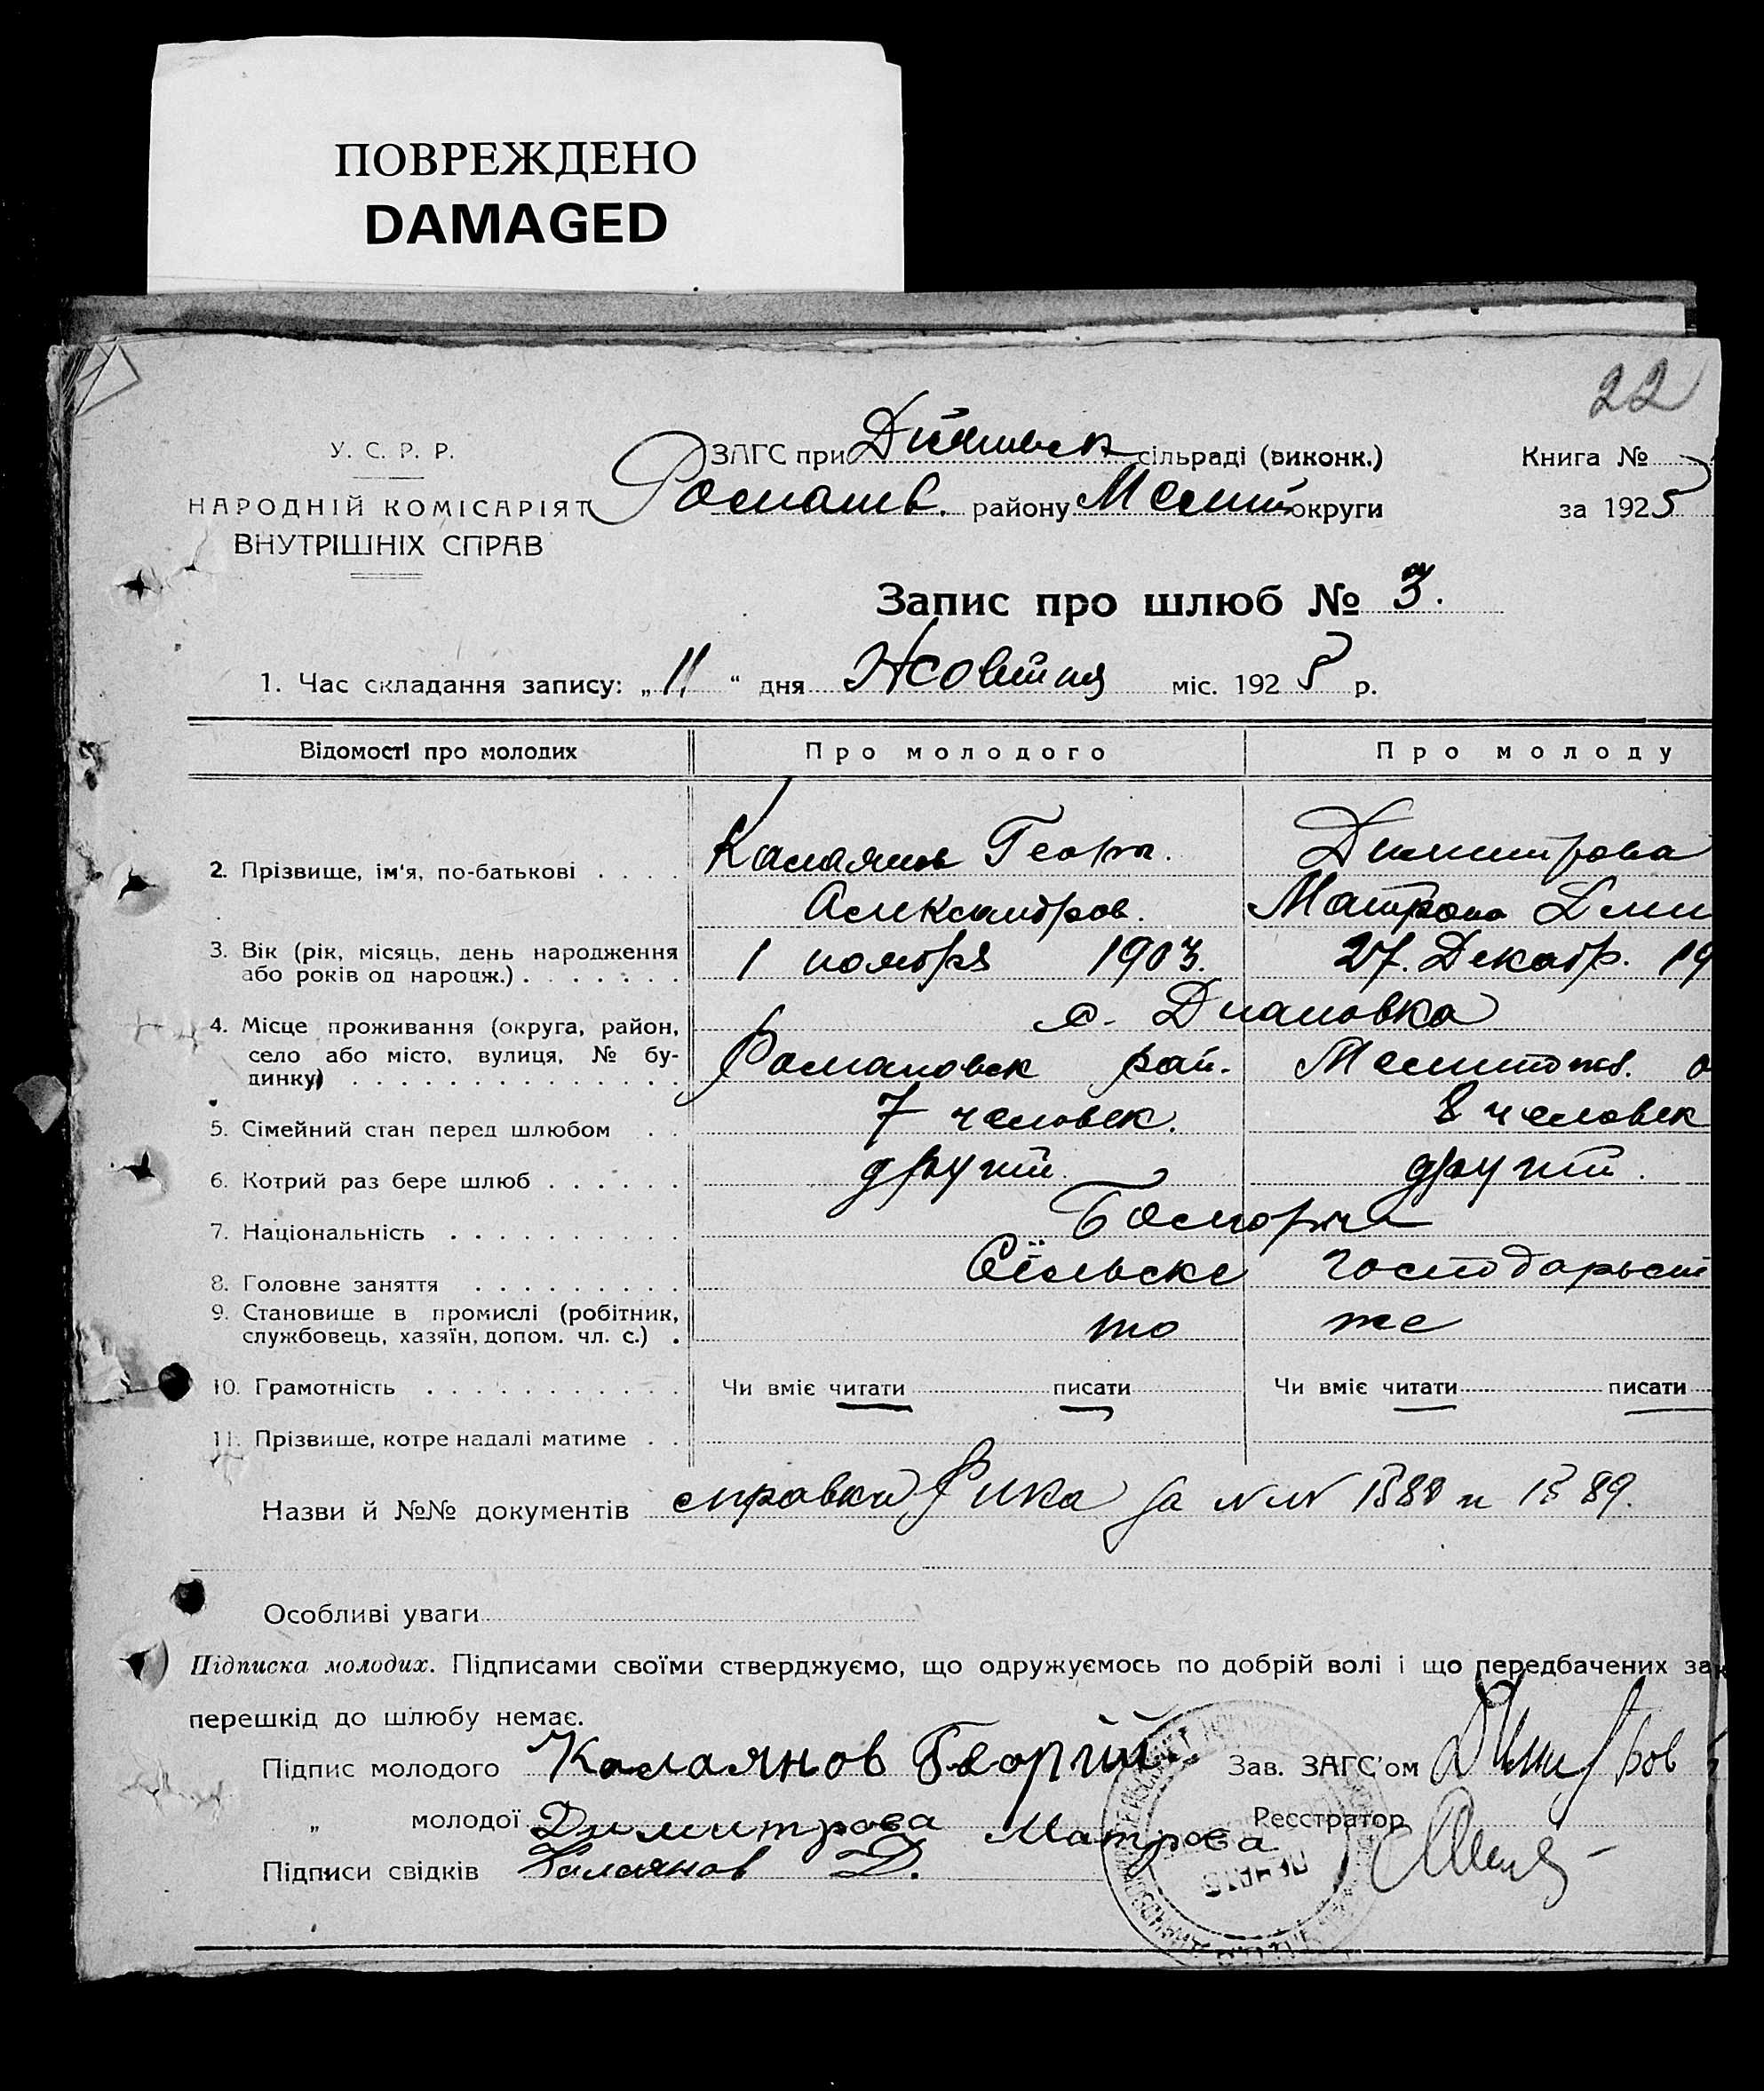 ПОВРЕЖДЕНО
DAMAGED
22
У. С. Р. Р.
НАРОДНІЙ КОМІСАРІЯТ
ВНУТРІШНІХ СПРАВ
ЗАГС при сільраді (виконк.)
Романів. району Меліт округи
Книга №
за 1925
Запис про шлюб № 3.
1. Час складання запису: „11“ дня Жовтня міс. 1925 р.
Відомості про молодих Про молодого Про молоду
2. Прізвище, ім'я, по-батькові . . . . Калаянов Георг. Димитрова
Александров. Матрона Дми
3. Вік (рік, місяць, день народження
або років од народж.) . . . . . . . 1 ноября 1903. 27. Декабр. 19
4. Місце проживання (округа, район,
село або місто, вулиця, № будинку) с. Диановка
Романовск рай. Мелитопв. о
5. Сімейний стан перед шлюбом . . 7 человек. 8 человек
6. Котрий раз бере шлюб . . . . . . другий другий.
7. Національність . . . . . . . . . . Болгоры
8. Головне заняття . . . . . . . . . Сїльске господарьст
9. Становище в промислі (робітник,
службовець, хазяїн, допом. чл. с.) . то же
10. Грамотність . . . . . . . . . . . Чи вміє читати писати Чи вміє читати писати
11. Прізвище, котре надалі матиме . .
Назви й №№ документів справки Рика за NN 1588 и 1589.
Особливі уваги
Підписка молодих. Підписами своїми стверджуємо, що одружуємось по добрій волі і що передбачених зак
перешкід до шлюбу немає.
Підпис молодого Калаянов Георгій Зав. ЗАГС'ом Димитров
„ молодої Димитрова Матрона Реєстратор
Підписи свідків Калаянов Д.